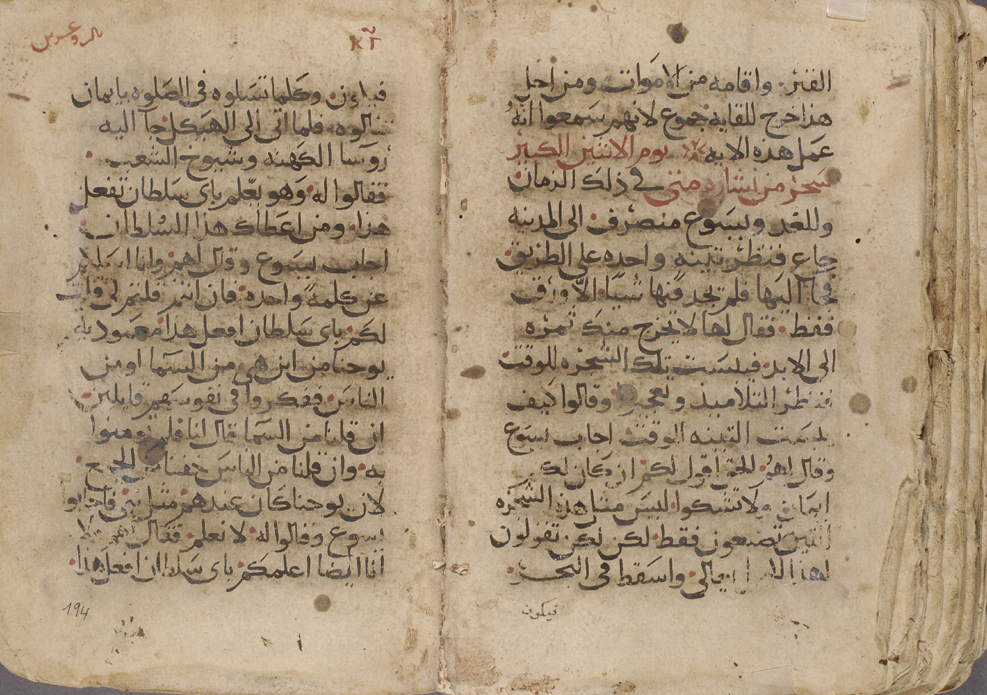 القبر واقامه من الاموات ومن اجل
هذا خرج للقايه جموع لانهم سمعوا انه
عمل هذه الايه يوم الاثنين الكبير
سحر من بشاره متى في ذلك الزمان
وللغد ويسوع منصرف الى المدينه
جاع فنظر تينه واحده على الطريق
فجا اليها فلم يجد فيها شيا الا ورق
فقط فقال لها لا يخرج منك ثمره
الى الابد فيبست تلك الشجره للوقت
فنظر التلاميذ وتعجبوا وقالوا كيف
يبست التينه الوقت اجاب يسوع
وقال لهم الحق اقول لكم ان كان لكم
ايمان ولا تشكوا ليس مثل هذه الشجره
التين تصنعون فقط لكن لكن تقولون
لهذا الجبل تعالى واسقط في البحر
فيكون
فيكون وكلما تسلوه في الصلوه بايمان
تنالوه فلما اتى الى الهيكل جا اليه
روسا الكهنه وشيوخ الشعب
فقالوا له وهو يعلم باى سلطان تفعل
هذا ومن اعطاك هذا السلطان
اجاب يسوع وقال لهم وانا اسلكم
عن كلمه واحده فان انتم قلتم لى قلت
لكم باى سلطان افعل هذا معموديه
يوحنا من اين هى من السما او من
الناس ففكروا في نفوسهم قايلين
ان قلنا من السما قال لنا فلم تومنوا
به وان قلنا من الناس خفنا من الجمع
لان يوحنا كان عندهم مثل نبى فاجابوا
يسوع وقالوا له لا نعلم فقال لهم ولا
انا ايضا اعلمكم باى سلطان افعل هذا
194